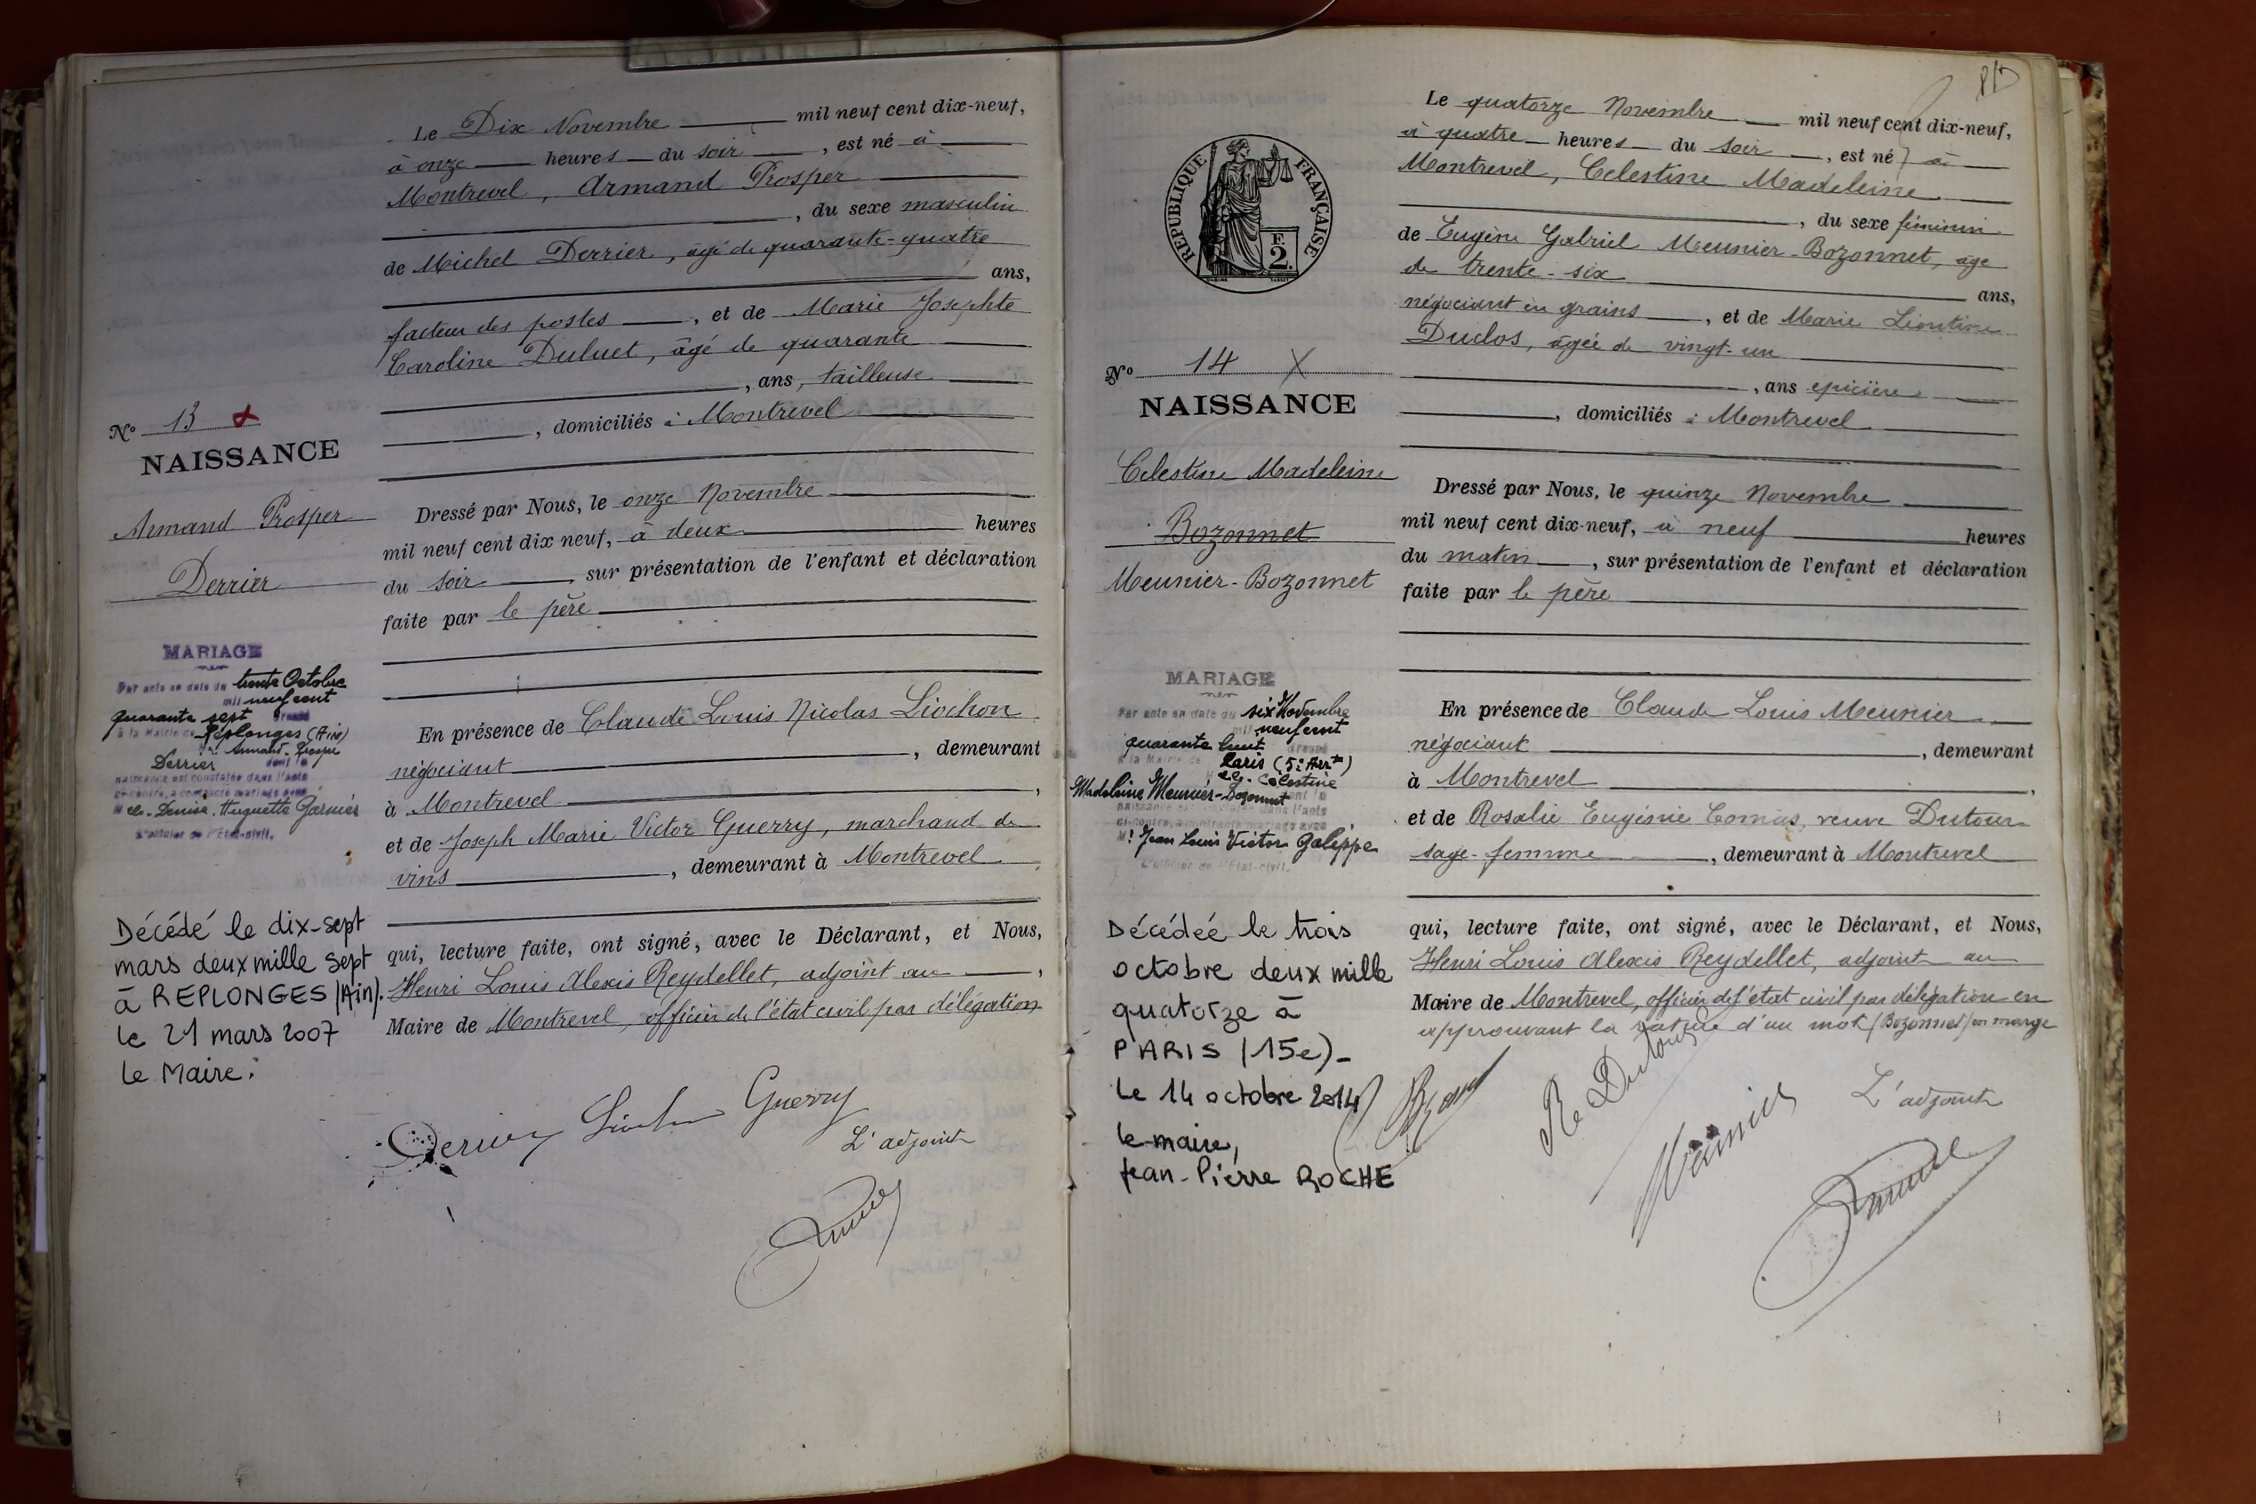 Le Dix Novembre mil neuf cent dix-neuf,
à onze heures du soir, est né à
Montrevel, Armand Prosper
, du sexe masculin
de Michel Derrier, âgé de quarante-quatre
ans,
facteur des postes, et de Marie Josephte
Caroline Duluet, âgé de quarante
, ans, tailleuse
, domiciliés à Montrevel
No 13
NAISSANCE
Armand Prosper
Derrier
Dressé par Nous, le onze Novembre
mil neuf cent dix neuf, à deux heures
du soir sur présentation de l'enfant et déclaration
faite par le père
MARIAGE
Par acte en date du trente Octobre
mil neuf cent
quarante sept dressé
à la Mairie de Replonges (Ain)
Armand-Prosper
Derrier dont la
naissance est constatée dans l'acte
ci-contre, a contracté mariage avec
Melle Denise Huguette Garnier
L'officier de l'État-civil.
En présence de Claude Louis Nicolas Liochon
négociant, demeurant
à Montrevel,
et de Joseph Marie Victor Guerry, marchand de
vins, demeurant à Montrevel
Décédé le dix-sept
mars deux mille sept
à REPLONGES (Ain).
le 21 mars 2007
Le Maire:
qui, lecture faite, ont signé, avec le Déclarant, et Nous,
Henri Louis Alexis Reydellet, adjoint au,
Maire de Montrevel, officier de l'état civil par délégation
Derrier Guerry
L'adjoint
P/D
Le quatorze Novembre mil neuf cent dix-neuf,
à quatre heures du soir, est né à
Montrevel, Celestine Madeleine
, du sexe féminin
de Eugène Gabriel Meunier-Bozonnet, âgé
de trente-six
ans,
négociant en grains, et de Marie Léontine
Duclos, âgée de vingt-un
, ans epicière
, domiciliés à Montrevel
RÉPUBLIQUE FRANÇAISE
F.
2.
No 14 X
NAISSANCE
Celestine Madeleine
Bozonnet
Meunier-Bozonnet
Dressé par Nous, le quinze Novembre
mil neuf cent dix-neuf, à neuf heures
du matin, sur présentation de l'enfant et déclaration
faite par le père
MARIAGE
Par acte en date du six Novembre
mil neuf cent
quarante huit dressé
à la Mairie de Paris (5e Arrt)
Melle Célestine
Madeleine Meunier-Bozonnet dont la
naissance est constatée dans l'acte
ci-contre, a contracté mariage avec
Mr Jean Louis Victor Galeppe
L'officier de l'État-civil.
En présence de Claude Louis Meunier
négociant, demeurant
à Montrevel,
et de Rosalie Eugénie Comas, veuve Dutour
sage-femme, demeurant à Montrevel
Décédée le trois
octobre deux mille
quatorze à
PARIS (15e)-
Le 14 octobre 2014
le maire,
Jean-Pierre ROCHE
qui, lecture faite, ont signé, avec le Déclarant, et Nous,
Henri Louis Alexis Reydellet, adjoint au
Maire de Montrevel, officier de l'état civil par délégation en
approuvant la rature d'un mot (Bozonnet) en marge
Re Dutour
Meunier
L'adjoint